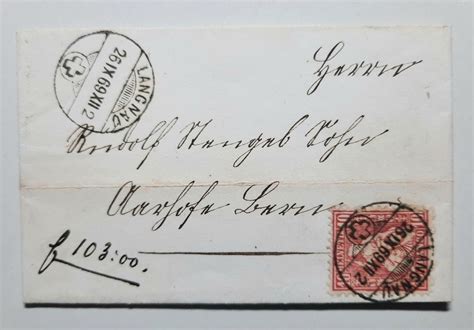 LANGNAU
26 IX 69 XII 2
Herrn
Rudolf Stengel Sohn
Aarhofe Bern
f 103.00.
10 10
LANGNAU
26 IX 69 XII 2